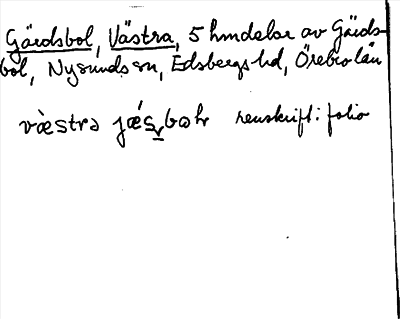 Gärdsbol, Västra, 5 hmdelar av Gärds-
bol, Nysunds sn, Edsbergs hd, Örebro län
væ̀strə jǽsbωlr renskrift i folio